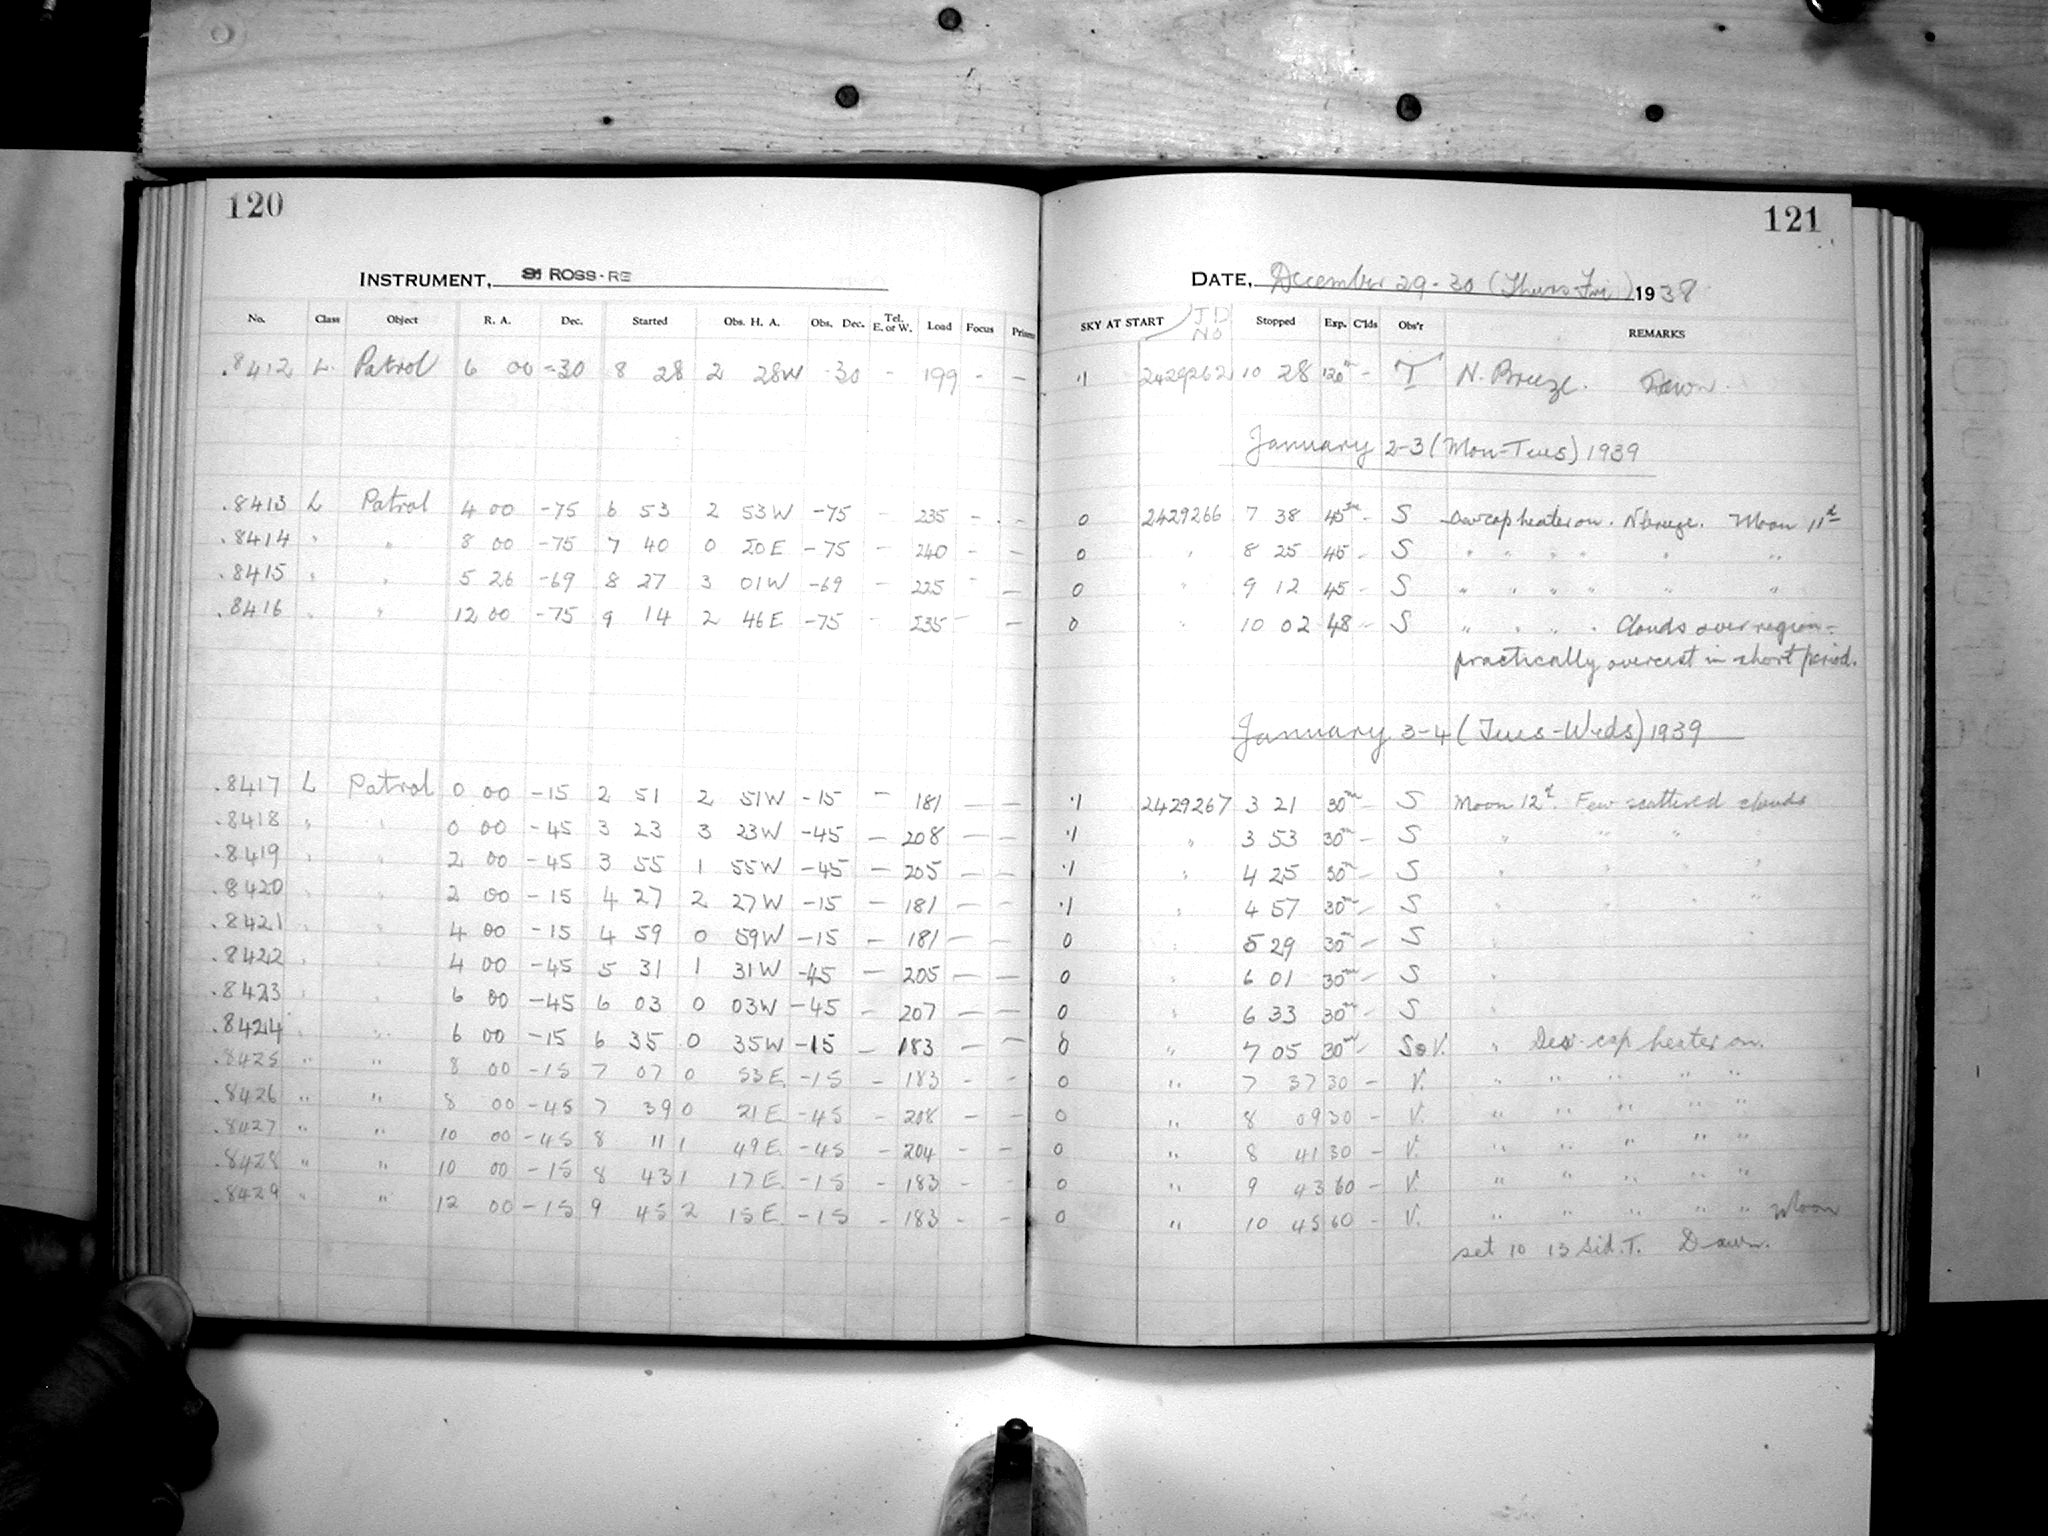 120
INSTRUMENT, ROSS-RE
No. Class Object R. A. Dec. Started Obs. H. A. Obs. Dec. Tel. E. or W. Load Focus Prism
.8412 L. Patrol 6 00 -30 8 28 2 28W -30 - 199 - -
.8413 L Patrol 4 00 -75 6 53 2 53W -75 - 235 - -
.8414 " " 8 00 -75 7 40 0 20E -75 - 240 - -
.8415 " " 5 26 -69 8 27 3 01W -69 - 225 - -
.8416 " " 12 00 -75 9 14 2 46E -75 - 235 - -
.8417 L Patrol 0 00 -15 2 51 2 51W -15 - 181 - -
.8418 " " 0 00 -45 3 23 3 23W -45 - 208 - -
.8419 " " 2 00 -45 3 55 1 55W -45 - 205 - -
.8420 " " 2 00 -15 4 27 2 27W -15 - 181 - -
.8421 " " 4 00 -15 4 59 0 59W -15 - 181 - -
.8422 " " 4 00 -45 5 31 1 31W -45 - 205 - -
.8423 " " 6 00 -45 6 03 0 03W -45 - 207 - -
.8424 " " 6 00 -15 6 35 0 35W -15 - 183 - -
.8425 " " 8 00 -15 7 07 0 53E -15 - 183 - -
.8426 " " 8 00 -45 7 39 0 21E -45 - 208 - -
.8427 " " 10 00 -45 8 11 1 49E -45 - 204 - -
.8428 " " 10 00 -15 8 43 1 17E -15 - 183 - -
.8429 " " 12 00 -15 9 45 2 15E -15 - 183 - -
121
DATE, December 29-30 (Thurs-Fri) 1938
SKY AT START J D No Stopped Exp. C'lds Obs'r REMARKS
.1 2429262 10 28 120m - T N. Breeze. Dawn.
January 2-3 (Mon-Tues) 1939
0 2429266 7 38 45m - S Dewcap heater on. N breeze. Moon 11d
0 " 8 25 45 - S " " " " " "
0 " 9 12 45 - S " " " " " "
0 " 10 02 48 - S " " " " Clouds over region -
practically overcast in short period.
January 3-4 (Tues-Weds) 1939
.1 2429267 3 21 30m - S Moon 12d. Few scattered clouds
.1 " 3 53 30m - S " " " "
.1 " 4 25 30m - S " " "
.1 " 4 57 30m - S " " " "
0 " 5 29 30m - S "
0 " 6 01 30m - S "
0 " 6 33 30m - S "
0 " 7 05 30m - S&V. " Dew-cap heater on.
0 " 7 37 30 - V. " " " " "
0 " 8 09 30 - V. " " " " "
0 " 8 41 30 - V. " " " " "
0 " 9 43 60 - V. " " " " "
0 " 10 45 60 - V. " " " " " Moon
set 10 13 Sid. T. Dawn.